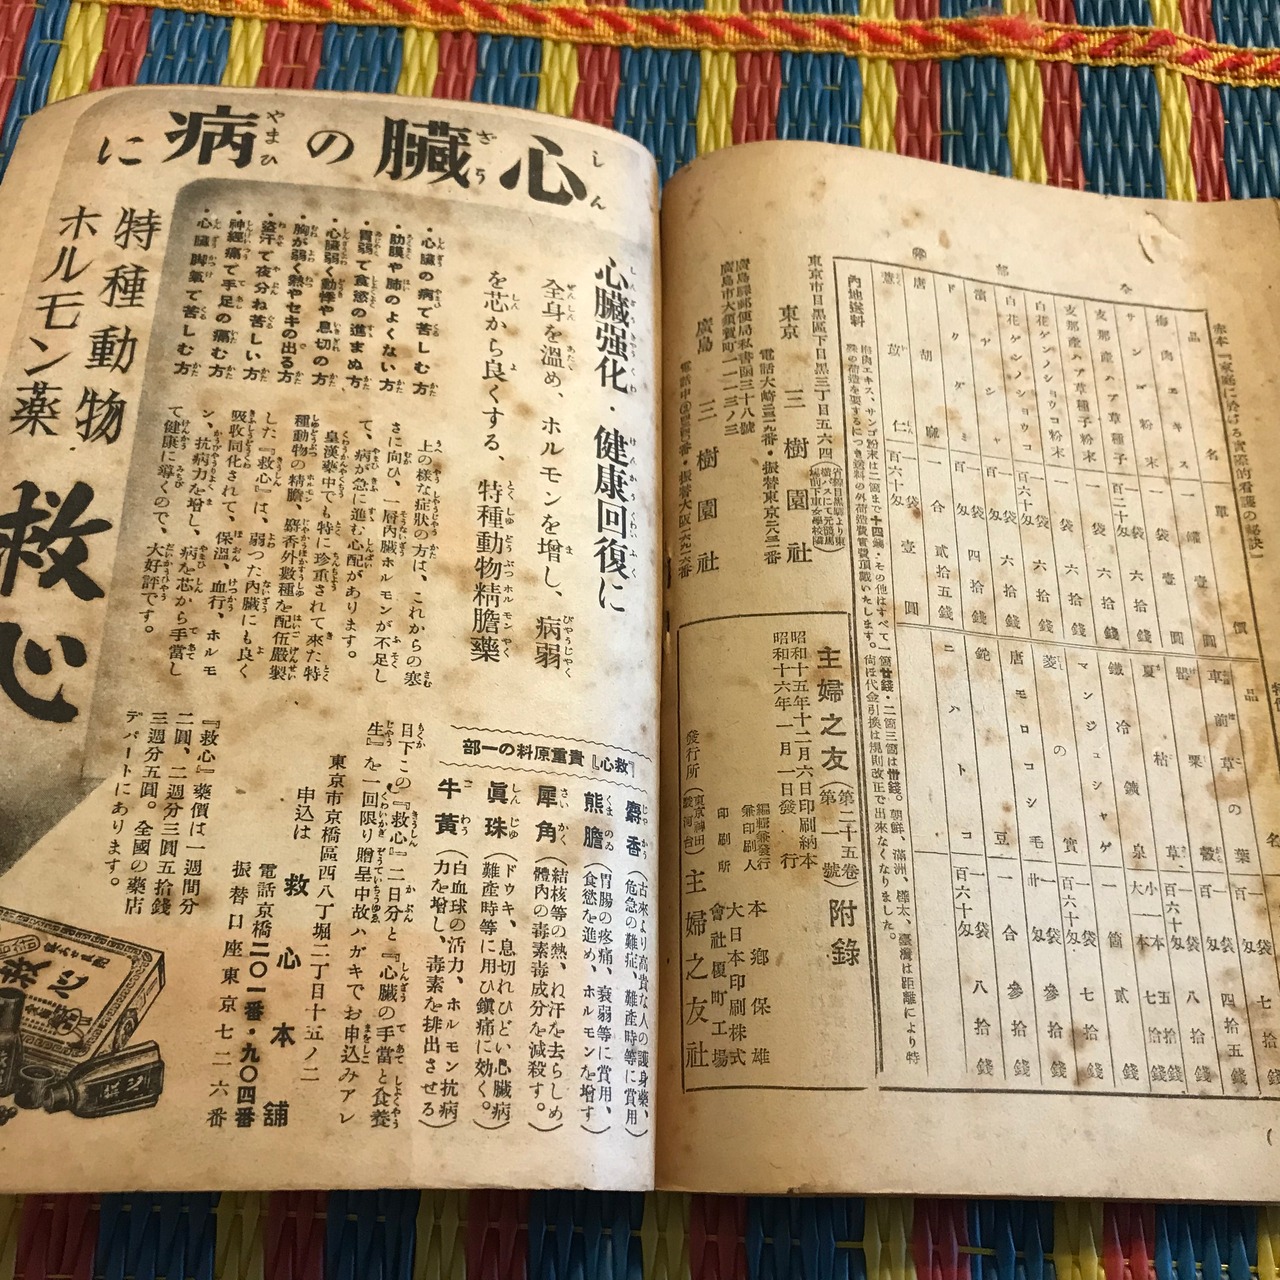 赤本『家庭に於ける實際的看護の秘訣』
品名 單價
梅肉エキス 一罐 壹圓
サンゴ粉末 一袋 壹圓
支那産ハブ草種子 百二十匁 六拾錢
支那産ハブ草種子粉末 一袋 六拾錢
白花ゲンノショウコ粉末 一袋 六拾錢
白花ゲンノショウコ 百六十匁 六拾錢
ドクダミ 百匁
唐胡麻 一合 貳拾五錢
薏苡仁 百六十匁 一袋 壹圓
品名
車前草の葉 百匁 四拾五
罌粟殼 一百匁 八拾錢
夏枯草 一百六十匁 五拾錢
鐵冷鑛泉 大一本 小一本 七拾錢
マンジュシャゲ 一箇 貳錢
菱の實 一袋 百六十匁 七拾錢
唐モロコシ毛 一袋 卅匁 參拾錢
鉈豆 一合 參拾錢
ニハトコ 一袋 百六十匁 八拾錢
內地送料
梅肉エキス、サンゴ粉末は二箇まで十四錢・その他はすべて一箇廿錢・二箇三箇は卅錢。朝鮮、滿洲、樺太、臺灣は距離により特
殊の荷造を要するにつき送料の外荷造費實費頂戴いたします。尙ほ代金引換は規則改正で出來なくなりました。
東京市目黑區下目黑三丁目五六四
東京 三樹園社
電話大崎三三九番・振替東京三三番
廣島驛郵便局私書函三十八號
廣島市大須賀町一一三ノ三
廣島 三樹園社
主婦之友 (第二十五卷 第一號) 附錄
昭和十五年十二月六日印刷納本
昭和十六年一月一日發行
編輯兼發行兼印刷人 本鄕保雄
印刷所 大日本印刷株式會社榎町工場
發行所 (東京神田駿河台) 主婦之友社
心臟の病に
しんざうやまひ
特種動物
ホルモン藥
救心
心臟强化・健康回復に
全身を溫め、ホルモンを增し、病弱
を芯から良くする、特種動物精膽藥
・心臟の病で苦しむ方
・肋膜や肺のよくない方
・胃弱で食慾の進まぬ方
・心臟弱く動悸や息切の方
・胸が弱く熱やセキの出る方
・盜汗で夜分ね苦しい方
・神經痛で手足の痛む方
・心臟脚氣で苦しむ方
上の樣な症狀の方は、これからの寒
さに向ひ、一層內臟ホルモンが不足し
て、病が急に進む心配があります。
皇漢藥中でも特に珍重されて來た特
種動物の精膽、麝香外數種を配伍嚴製
した『救心』は、弱つた內臟にも良く
吸收同化されて、保溫、血行、ホルモ
ン、抗病力を增し、病を芯から手當し
て健康に導くので、大好評です。
『救心』貴重原料の一部
麝香 (古來より高貴な人の護身藥、危急の難症、難產時等に賞用)
熊膽 (胃腸の疼痛、衰弱等に賞用、食慾を進め、ホルモンを增す)
犀角 (結核等の熱、ね汗を去らしめ體內の毒素毒成分を減殺す。)
眞珠 (ドウキ、息切れひどい心臟病難產時等に用ひ鎭痛に効く。)
牛黃 (白血球の活力、ホルモン抗病力を增し、毒素を排出させる)
目下この『救心』二日分と『心臟の手當と食養
生』を一回限り贈呈中故ハガキでお申込みアレ
東京市京橋區西八丁堀二丁目十五ノ二
申込は 救心本舖
電話京橋二〇一番・九〇四番
振替口座東京七二六番
『救心』藥價は一週間分
二圓、二週分三圓五拾錢
三週分五圓。全國の藥店
デパートにあります。
救心